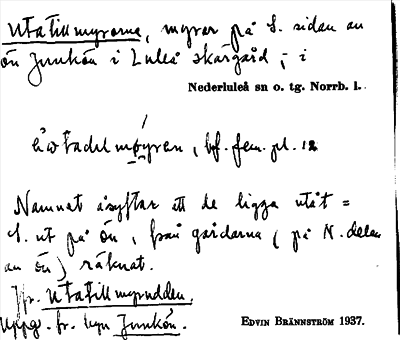 Utatillmyrorna, myrar på S. sidan av
ön Junkön i Luleå skärgård, i
Nederluleå sn o. tg. Norrb. l.
bf. fem. pl.
Namnet åsyftar att de ligga utåt =
S. ut på ön, från gårdarna (på N. delen
av ön) räknat.
Jfr. Utatillmyrudden.
Uppg. fr. byn Junkön.
EDVIN BRÄNNSTRÖM 1937.